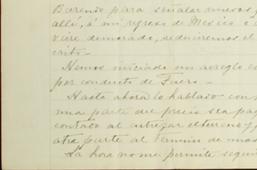 Burendo para señalar
allá, á mi regreso de Mexico
viere demorado, reduciremos el
crito.
Hemos iniciado un arreglo
por conducto de Fuero.
Hasta ahora lo hablado
una parte del precio sea
contado al entregar el terreno y
otra parte al término de
La hora no me permite seguir